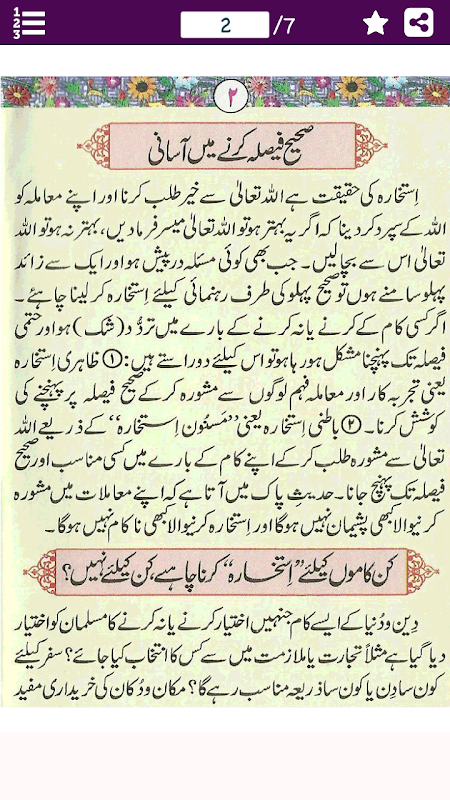 1
2
3
2 /7
۲
صحیح فیصلہ کرنے میں آسانی
اِستخارہ کی حقیقت ہے اللہ تعالیٰ سے خیر طلب کرنا اور اپنے معاملہ کو
اللہ کے سپرد کر دینا کہ اگر یہ بہتر ہو تو اللہ تعالیٰ میسر فرمادیں، بہتر نہ ہو تو اللہ
تعالیٰ اس سے بچالیں۔ جب بھی کوئی مسئلہ درپیش ہو اور ایک سے زائد
پہلو سامنے ہوں تو صحیح پہلو کی طرف رہنمائی کیلئے اِستخارہ کر لینا چاہئے۔
اگر کسی کام کے کرنے یا نہ کرنے کے بارے میں تردُّد (شک) ہو اور حتمی
فیصلہ تک پہنچنا مشکل ہو رہا ہو تو اس کیلئے دو راستے ہیں: ① ظاہری اِستخارہ
یعنی تجربہ کار اور معاملہ فہم لوگوں سے مشورہ کر کے صحیح فیصلہ پر پہنچنے کی
کوشش کرنا۔ ② باطنی اِستخارہ یعنی ’’مَسنُون اِستخارہ‘‘ کے ذریعے اللہ
تعالیٰ سے مشورہ طلب کر کے اپنے کام کے بارے میں کسی مناسب اور صحیح
فیصلہ تک پہنچ جانا۔ حدیثِ پاک میں آتا ہے کہ اپنے معاملات میں مشورہ
کرنیوالا کبھی پشیمان نہیں ہوگا اور اِستخارہ کرنیوالا کبھی نا کام نہیں ہوگا۔
کن کاموں کیلئے ’’اِستخارہ‘‘ کرنا چاہے، کن کیلئے نہیں؟
دِین و دُنیا کے ایسے کام جنہیں اختیار کرنے یا نہ کرنے کا مسلمان کو اختیار
دیا گیا ہے مثلاً تجارت یا ملازمت میں سے کس کا انتخاب کیا جائے؟ سفر کیلئے
کون سا دِن یا کون سا ذریعہ مناسب رہے گا؟ مکان و دُکان کی خریداری مفید